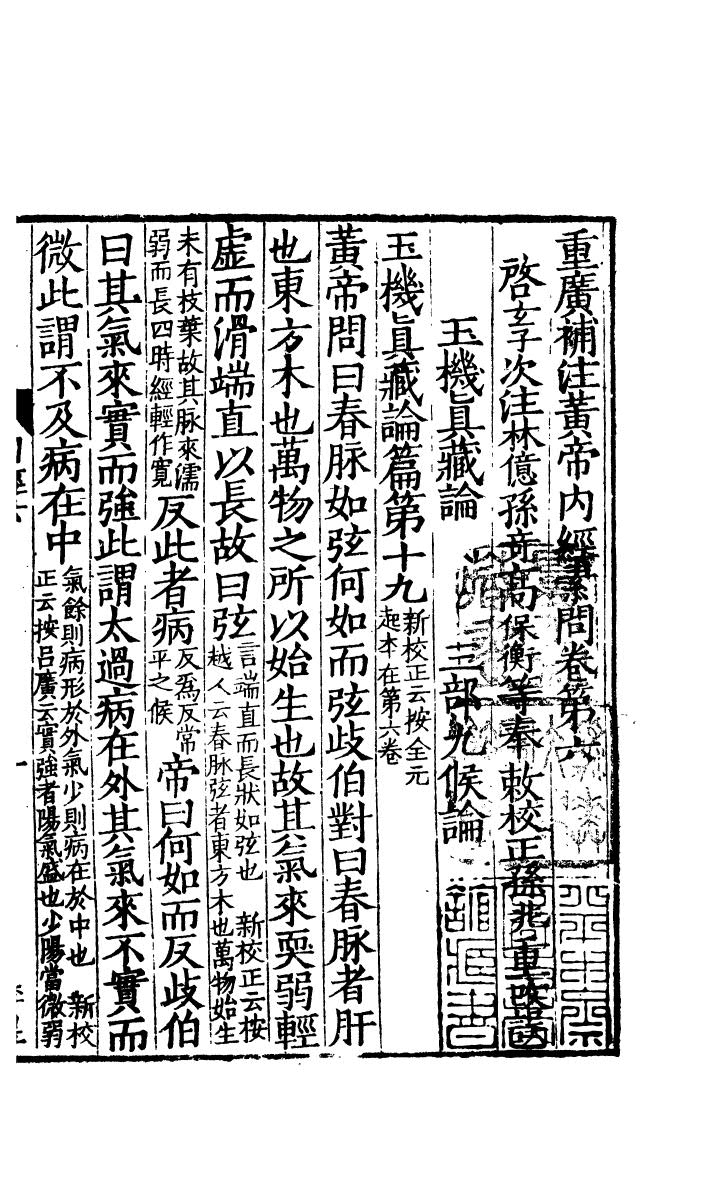 重廣補注黃帝內經素問卷第六
啓玄子次注林億孫奇高保衡等奉敕校正孫兆重改誤
玉機眞藏論　三部九候論
玉機眞藏論篇第十九新校正云按全元起本在第六卷
黃帝問曰春脉如弦何如而弦歧伯對曰春脉者肝
也東方木也萬物之所以始生也故其氣來耎弱輕
虛而滑端直以長故曰弦言端直而長狀如弦也　新校正云按越人云春脉弦者東方木也萬物始生
未有枝葉故其脉來濡弱而長四時經輕作寬反此者病反爲反常平之候帝曰何如而反歧伯
曰其氣來實而強此謂太過病在外其氣來不實而
微此謂不及病在中氣餘則病形於外氣少則病在於中也　新校正云按呂廣云實強者陽氣盛也少陽當微弱